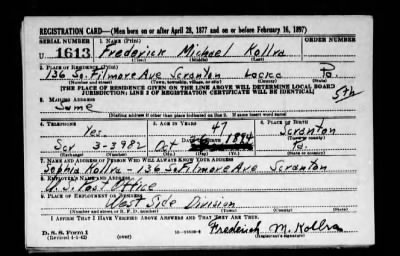 REGISTRATION CARD—(Men born on or after April 28, 1877 and on or before February 16, 1897)
SERIAL NUMBER 1. NAME (Print) ORDER NUMBER
U 1613 Frederick Michael Kollra
(First) (Middle) (Last)
2. PLACE OF RESIDENCE (Print)
136 So. Filmore Ave Scranton Lacka Pa.
(Number and street) (Town, township, village, or city) (County) (State)
[THE PLACE OF RESIDENCE GIVEN ON THE LINE ABOVE WILL DETERMINE LOCAL BOARD
JURISDICTION; LINE 2 OF REGISTRATION CERTIFICATE WILL BE IDENTICAL]
5th
3. MAILING ADDRESS
Same
[Mailing address if other than place indicated on line 2. If same insert word same]
4. TELEPHONE 5. AGE IN YEARS 6. PLACE OF BIRTH
Yes 47 Scranton
DATE OF BIRTH
Scr 3-3982 Oct 1894 Pa.
(Exchange) (Number) (Mo.) (Day) (Yr.) (State or country)
7. NAME AND ADDRESS OF PERSON WHO WILL ALWAYS KNOW YOUR ADDRESS
Sophia Kollra - 136 So Filmore Ave Scranton
8. EMPLOYER'S NAME AND ADDRESS
U.S. Post Office
9. PLACE OF EMPLOYMENT OR BUSINESS
West Side Division
(Number and street or R. F. D. number) (Town) (County) (State)
I AFFIRM THAT I HAVE VERIFIED ABOVE ANSWERS AND THAT THEY ARE TRUE.
D. S. S. Form 1
(Revised 4-1-42) (over) Frederick M. Kollra
(Registrant's signature)